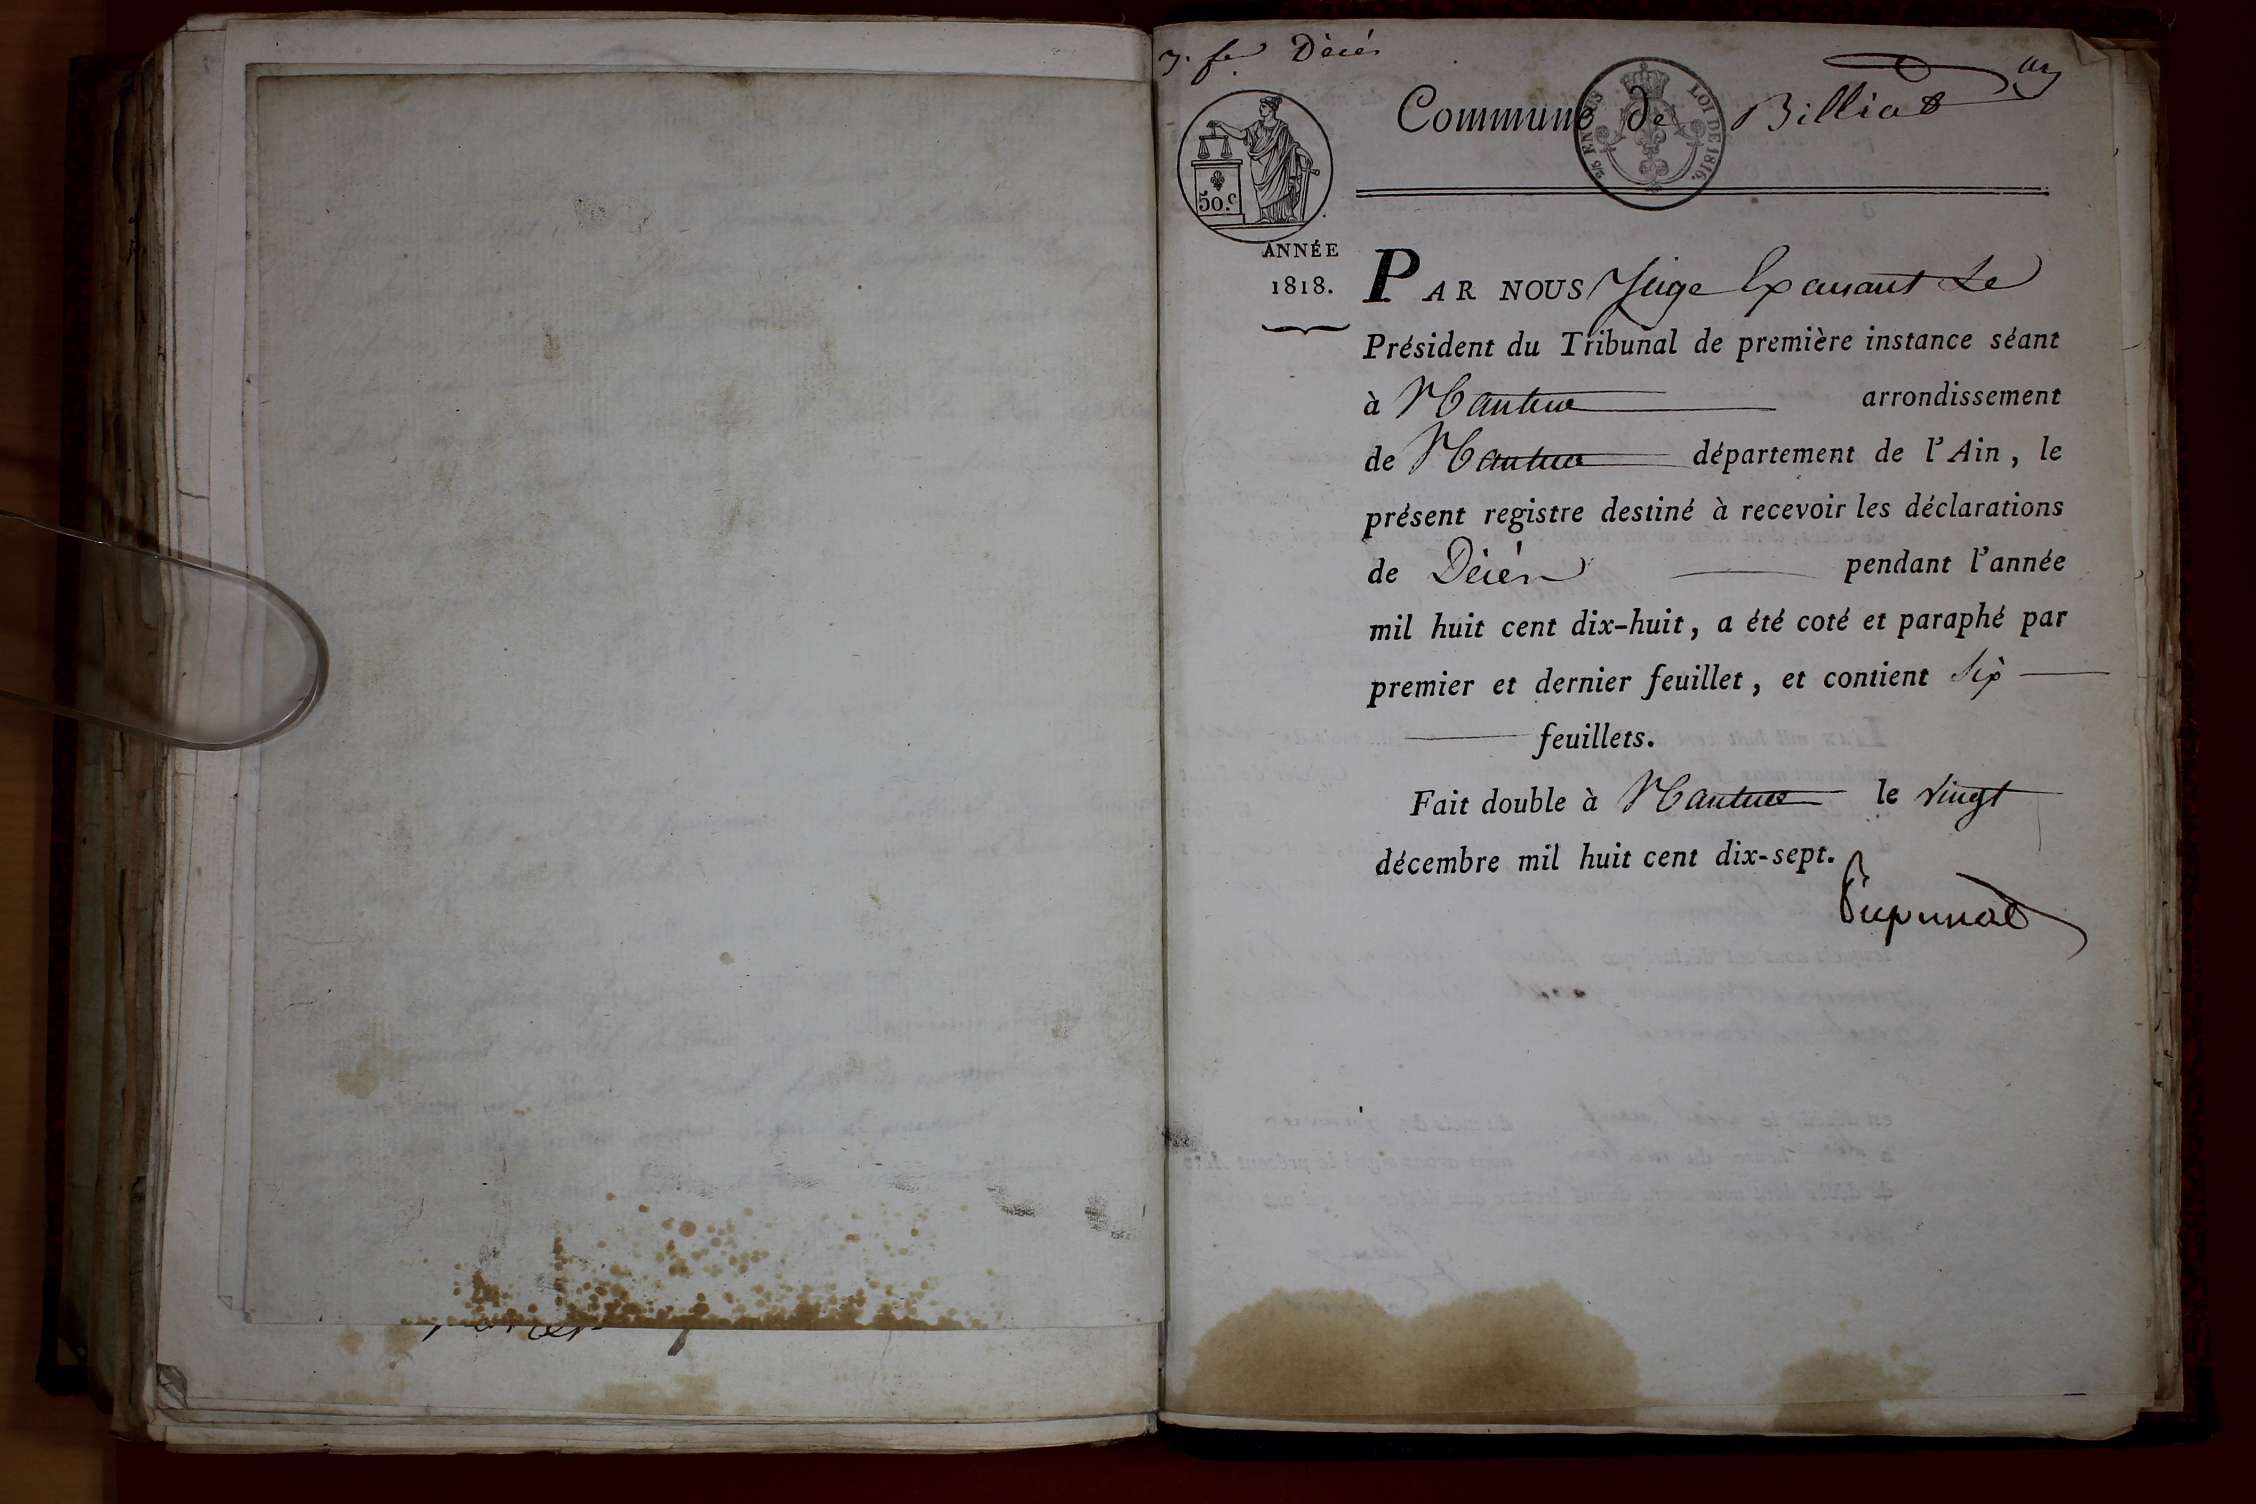 Décés
Commune de Billiat
25 EN SUS
LOI DE 1816.
50.C
ANNÉE
1818.
PAR NOUS Juge Exerçant Le
Président du Tribunal de première instance séant
à Nantua arrondissement
de Nantua département de l'Ain, le
présent registre destiné à recevoir les déclarations
de Décès pendant l'année
mil huit cent dix-huit, a été coté et paraphé par
premier et dernier feuillet, et contient Six
feuillets.
Fait double à Nantua le vingt
décembre mil huit cent dix-sept.